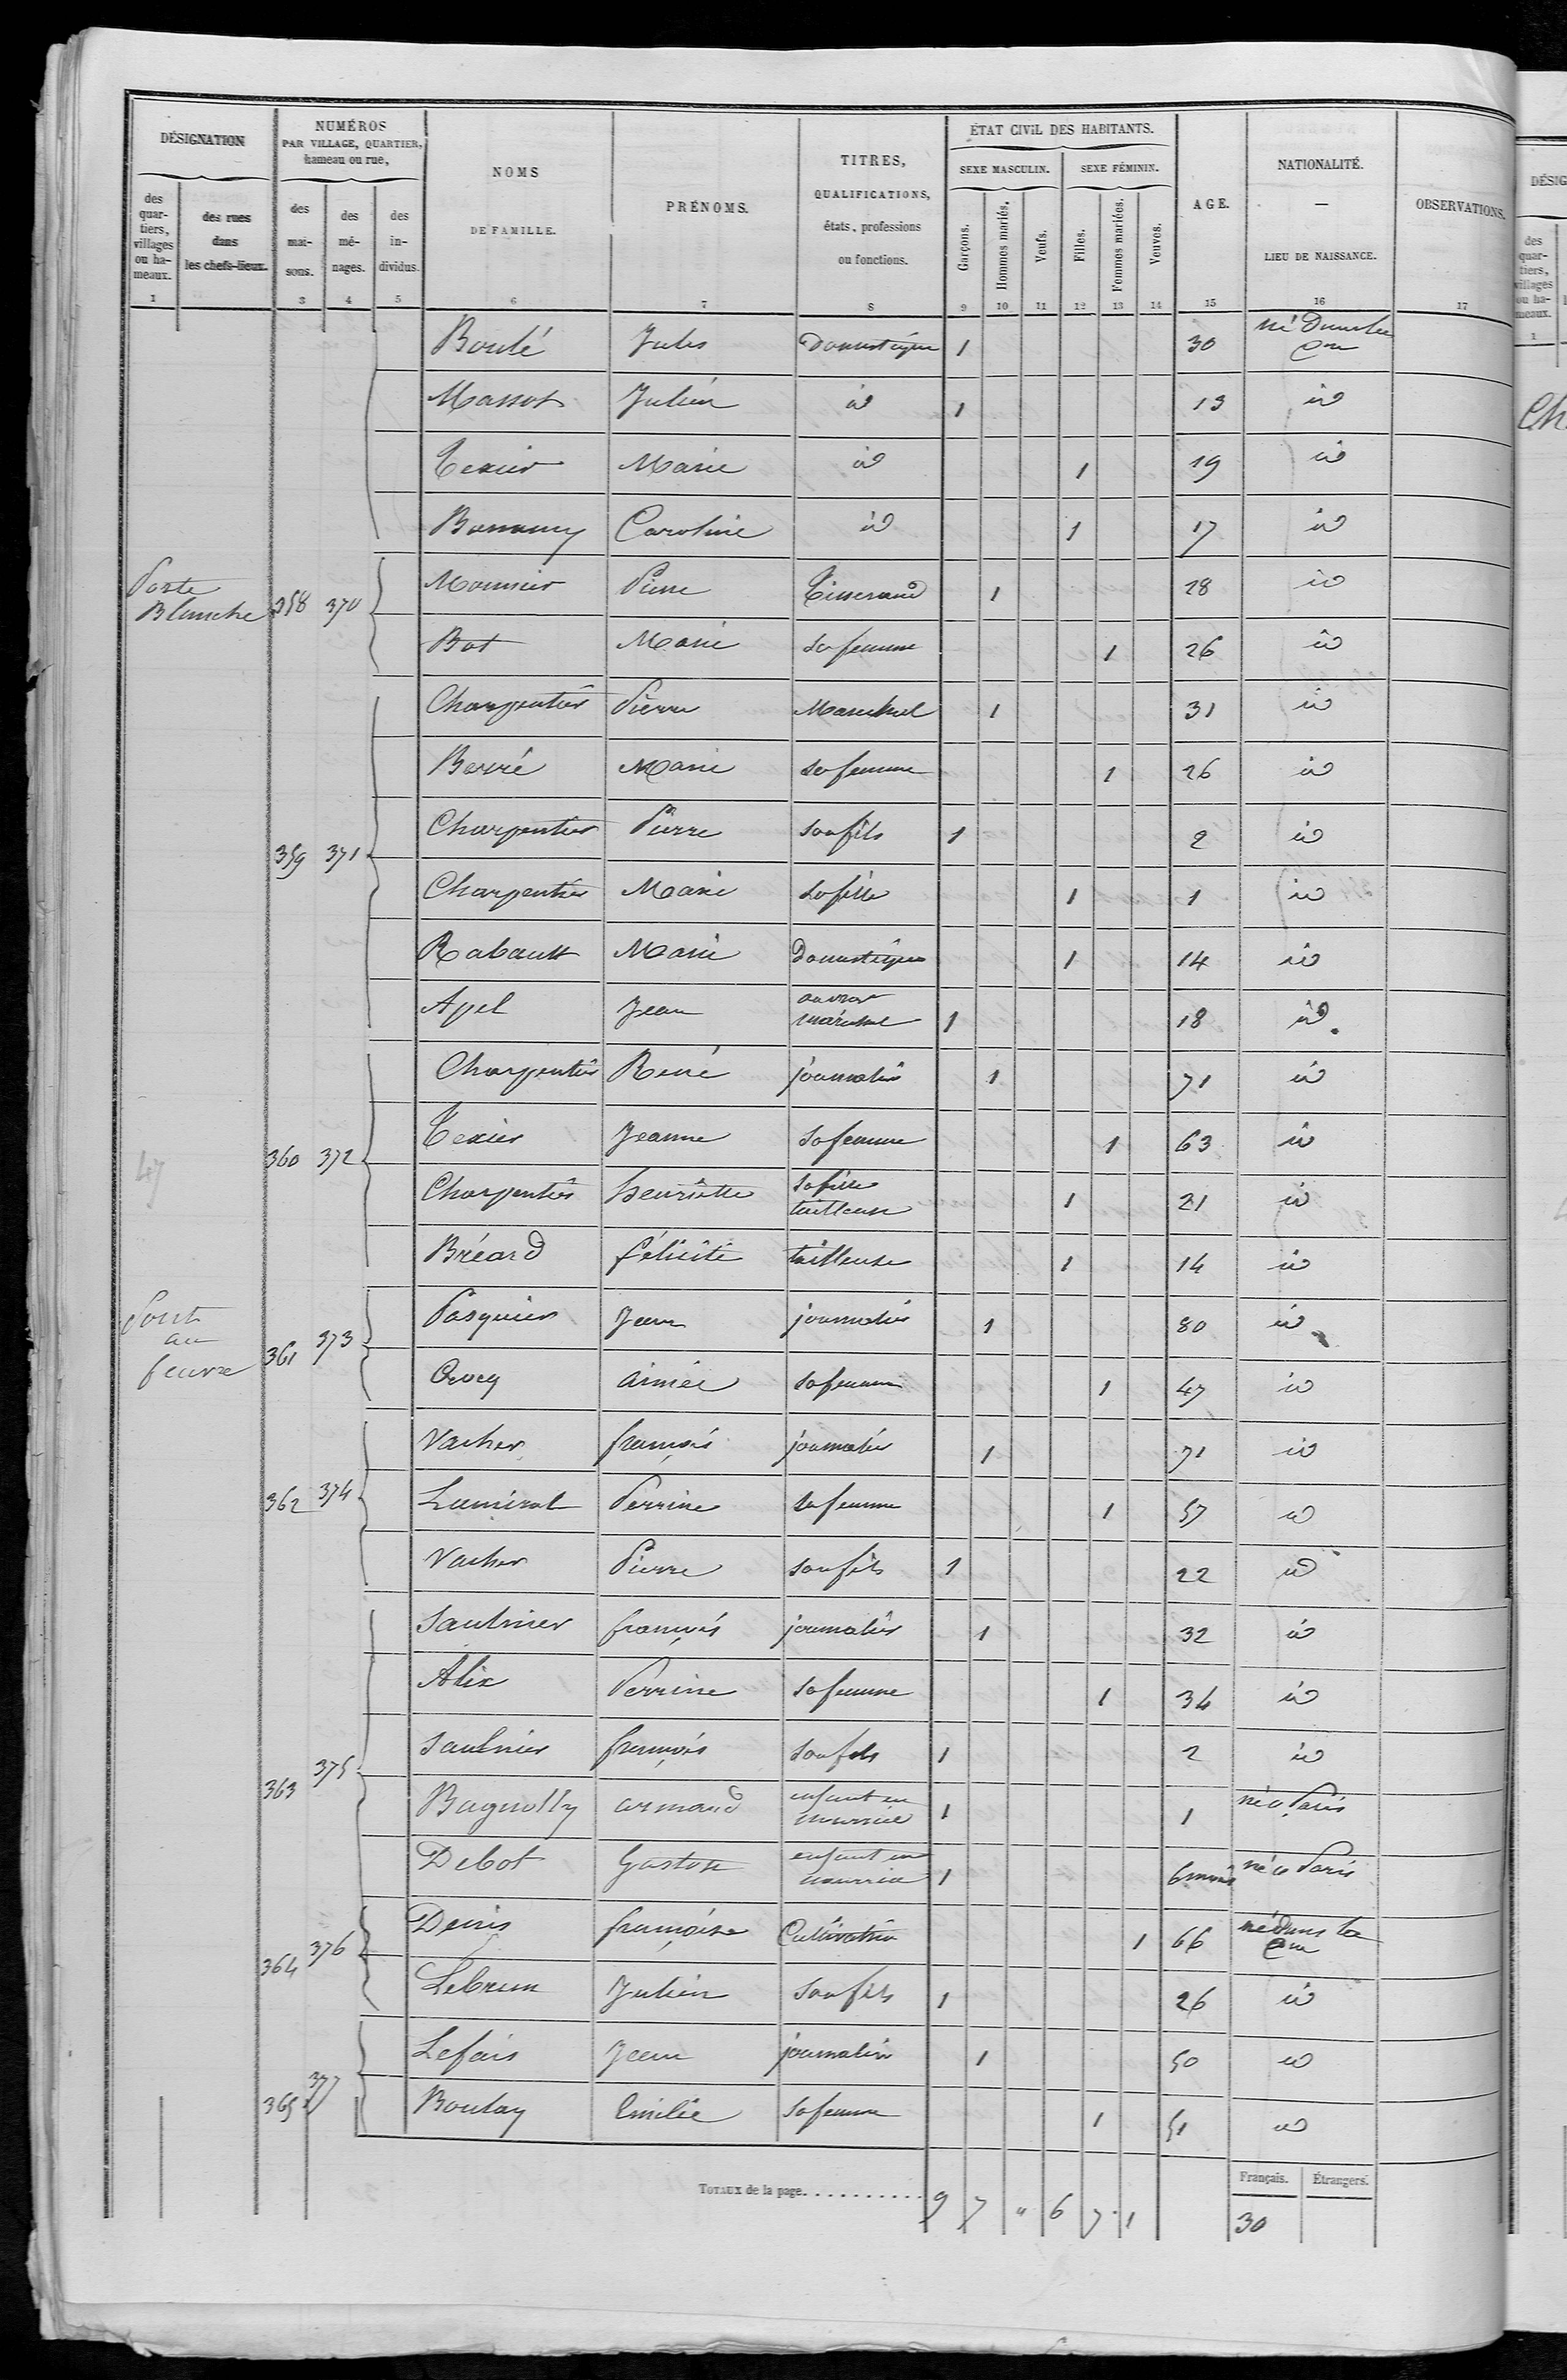 DÉSIGNATION
NUMÉROS
PAR VILLAGE, QUARTIER,
hameau ou rue,
NOMS
DE FAMILLE.
PRÉNOMS.
TITRES,
QUALIFICATIONS,
états, professions
ou fonctions.
ÉTAT CIVIL DES HABITANTS.
SEXE MASCULIN.
SEXE FÉMININ.
AGE.
NATIONALITÉ.
—
LIEU DE NAISSANCE.
OBSERVATIONS.
des
quar-
tiers,
villages
ou ha-
meaux.
des rues
dans
les chefs-lieux.
des
mai-
sons.
des
mé-
nages.
des
in-
dividus.
Garçons.
Hommes mariés.
Veufs.
Filles.
Femmes mariées.
Veuves.
1 3 4 5 6 7 8 9 10 11 12 13 14 15 16 17
Boulé Jules Domestique 1 30 né dans la Cne
Massot Julien id 1 13 id
Texier Marie id 1 19 id
Caroline id 1 17 id
Porte Blanche 358 370 Monnier Pierre Tisserand 1 28 id
Bot Marie sa femme 1 26 id
Charpentier Pierre Marechal 1 31 id
Berré Marie sa femme 1 26 id
359 371 Charpentier Pierre son fils 1 2 id
Charpentier Marie sa fille 1 1 id
Rabault Marie Domestique 1 14 id
Apel Jean ouvrier maréchal 1 18 id
Charpentier René journalier 1 71 id
47 360 372 Texier Jeanne sa femme 1 63 id
Charpentier henriette sa fille tailleuse 1 21 id
Bréard félicité tailleuse 1 14 id
Pont au feuvre 361 373 Pasquier Jean journalier 1 80 id
aimée sa femme 1 47 id
Vacher françois journalier 1 71 id
362 374 Lamiral Perrine sa femme 1 57 id
Vacher Pierre son fils 1 22 id
Saulnier françois journalier 1 32 id
Alix Perrine sa femme 1 34 id
363 375 Saulnier françois son fils 1 2 id
Bagnolly armand enfant en nourrice 1 1 né à Paris
Debot Gaston enfant en nourrice 1 6 mois né à Paris
364 376 Denis françoise Cultivatrice 1 66 née dans la Cne
Lebrun Julien son fils 1 26 id
Lefais Jean journalier 1 50 id
365 377 Boulay Emilie sa femme 1 51 id
Français. Étrangers.
TOTAUX de la page. . . . . . . . . . . 9 7 " 6 7 1 30
DÉSIG
des
quar-
tiers,
villages
ou ha-
meaux.
1
Ch